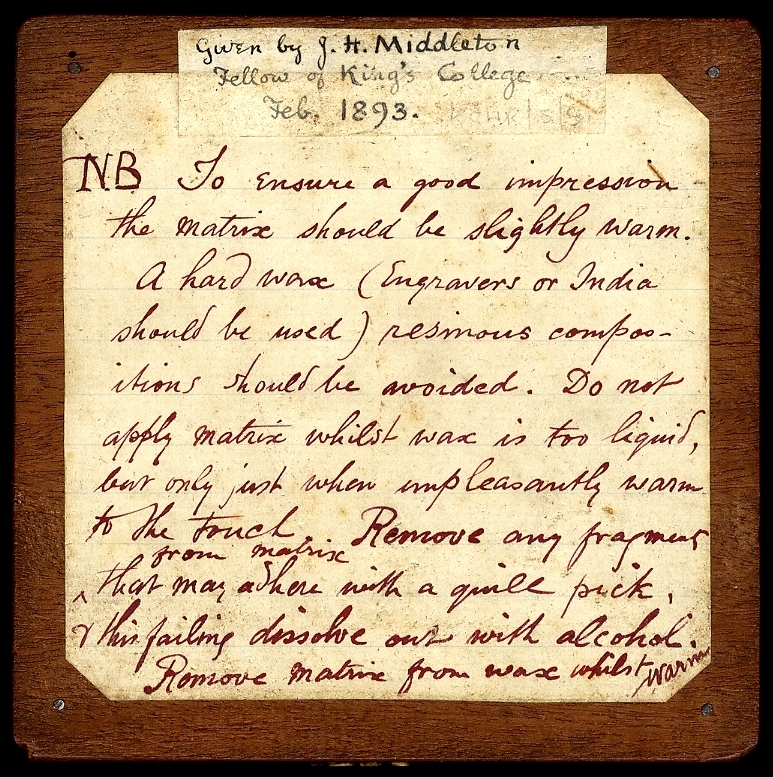 Given by J. H. Middleton
Fellow of King's College
Feb. 1893.
NB To ensure a good impression
the matrix should be slightly warm.
A hard wax (Engravers or India
should be used) resinous compos-
itions should be avoided. Do not
apply matrix whilst wax is too liquid,
but only just when unpleasantly warm
to the touch. Remove any fragment
from matrix
that may adhere with a quill pick,
& this failing dissolve out with alcohol
Remove matrix from wax whilst warm